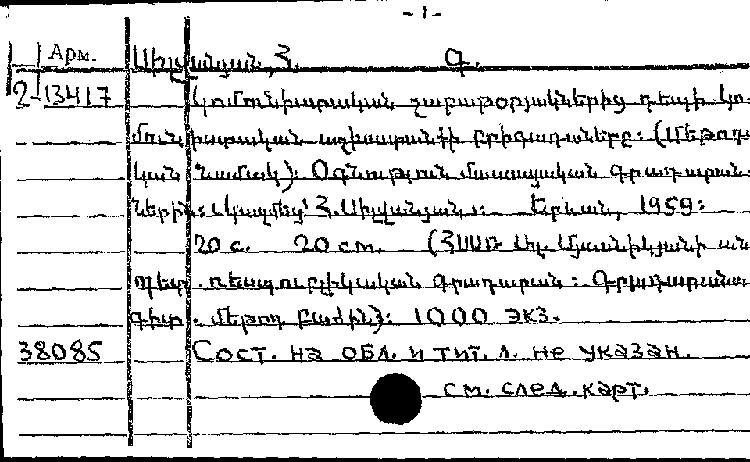 -1-
Арм. Սիլվանյան, Հ. Գ.
2-13417 Կոմունիստական շաբաթօրյակներից դեպի կո-
մունիստական աշխատանքի բրիգադները: (Մեթոդ.
կան նամակ): Օգնություն մասսայական գրադարան-
ներին: Կազմեց՝ Հ. Սիլվանյան: Երևան, 1959:
20 с. 20 cm. (ՀՍՍՌ Ալ. Մյասնիկյանի ան
պետ. ռեսպուբլիկական գրադարան: Գրադարանա-
գիտ. մեթոդ բաժին): 1000 экз.
38085 Сост. на обл. и тит. л. не указан.
см. след. карт.